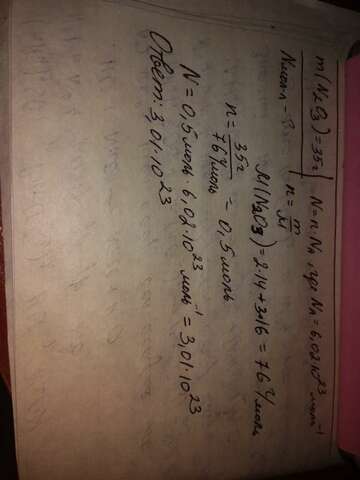 m(N₂O₃)=35г | N=n·Nₐ, где Nₐ=6,02·10²³ моль⁻¹
Nмол-? | n=m/M
M(N₂O₃)=2·14+3·16=76 г/моль
n=35г/76г/моль=0,5моль
N=0,5моль·6,02·10²³ моль⁻¹=3,01·10²³
Ответ: 3,01·10²³